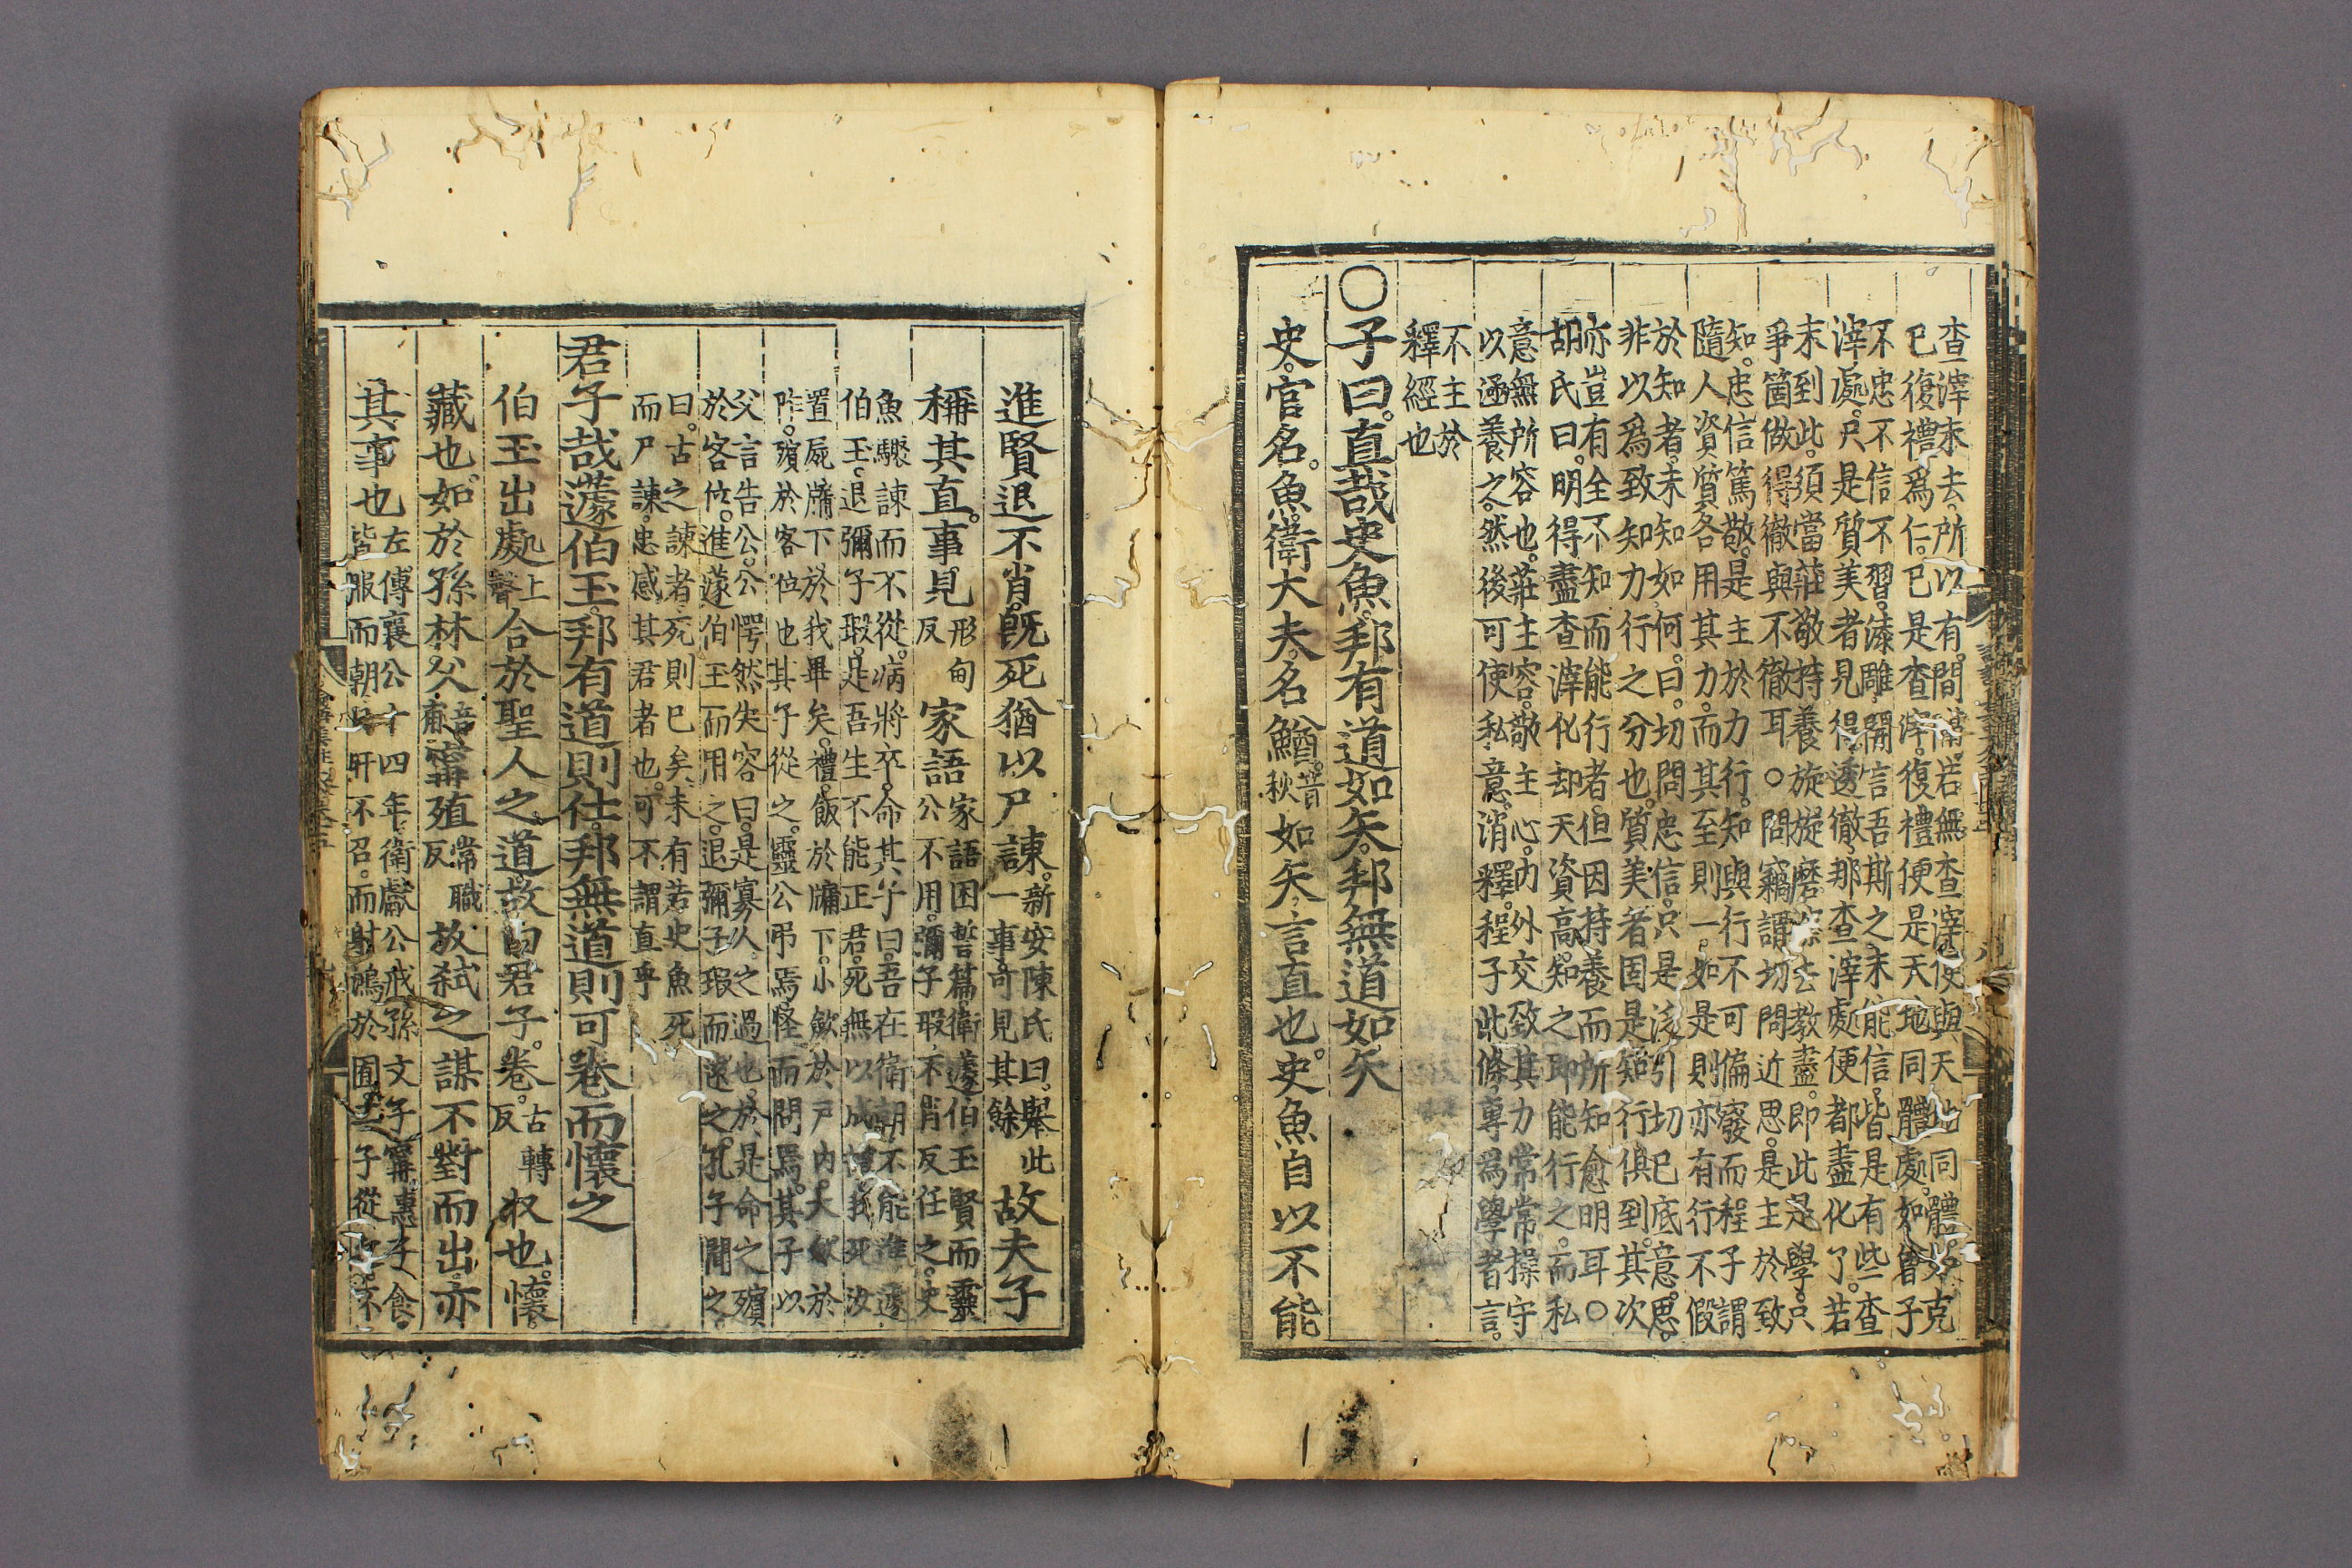 查滓未去所以有間隔若無查滓便與天地同體如克
已復禮爲仁已是查滓復禮便是天地同體處如曾子
不忠不信不習漆雕開言吾斯之未能信皆是有些查
滓處只是質美者見得透徹那查滓處便都盡化了若
未到此須當莊敬持養旋旋磨擦去教盡即此是學只
爭箇做得徹與不徹耳○問竊謂切問近思是主於致
知忠信篤敬是主於力行知與行不可偏廢而程子謂
隨人資質各用其力而其至則一如是則亦有行不假
於知者未知如何曰切問忠信只是泛引切已底意思
非以爲致知力行之分也質美者固是知行俱到其次
亦豈有全不知而能行者但因持養而所知愈明耳○
胡氏曰明得盡查滓化却天資高知之即能行之而私
意無所容也莊主容敬主心內外交致其力常常操守
以涵養之然後可使私意消釋程子此條專爲學者言
不主於
釋經也
○子曰直哉史魚邦有道如矢邦無道如矢
史官名魚衛大夫名鰌音秋如矢言直也史魚自以不能
進賢退不肖旣死猶以尸諫新安陳氏曰舉此一事可見其餘故夫子
稱其直事見形甸反家語家語困誓篇衛蘧伯玉賢而靈
公不用彌子瑕不肖反任之史
魚驟諫而不從病將卒命其子曰吾在衛朝不能進蘧
伯玉退彌子瑕是吾生不能正君死無以成禮我死汝
置屍牖下於我畢矣禮飯於牖下小斂於戶內大斂於
阼殯於客位也其子從之靈公弔焉怪而問焉其子以
父言告公公愕然失容曰是寡人之過也於是命之殯
於客位進蘧伯玉而用之退彌子瑕而遠之孔子聞之
曰古之諫者死則已矣未有若史魚死
而尸諫忠感其君者也可不謂直乎
君子哉蘧伯玉邦有道則仕邦無道則可卷而懷之
伯玉出處上聲合於聖人之道故曰君子卷古轉反收也懷
藏也如於孫林父音甫寗殖常職反放弑之謀不對而出亦
其事也左傳襄公十四年衛獻公戒孫文子寗惠子食
皆服而朝日旰不召而射鴻於囿二子從之不